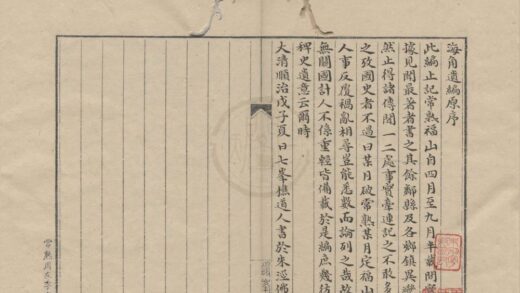 海角遺編原序
此編止記常熟福山自四月至九月半載間實
據見聞最著者書之其餘鄰縣及各鄉鎮異變
然止得諸傳聞一二處事實牽連記之不敢多
之攷國史者不過曰某月破常熟某月定福山
人事反覆禍亂相尋豈能悉數而論列之哉故
無關國計人不係重輕皆備載於是編庶幾彷
稗史遺意云爾時
大清順治戊子夏日七峯樵道人書於朱涇佛
常熟周左季